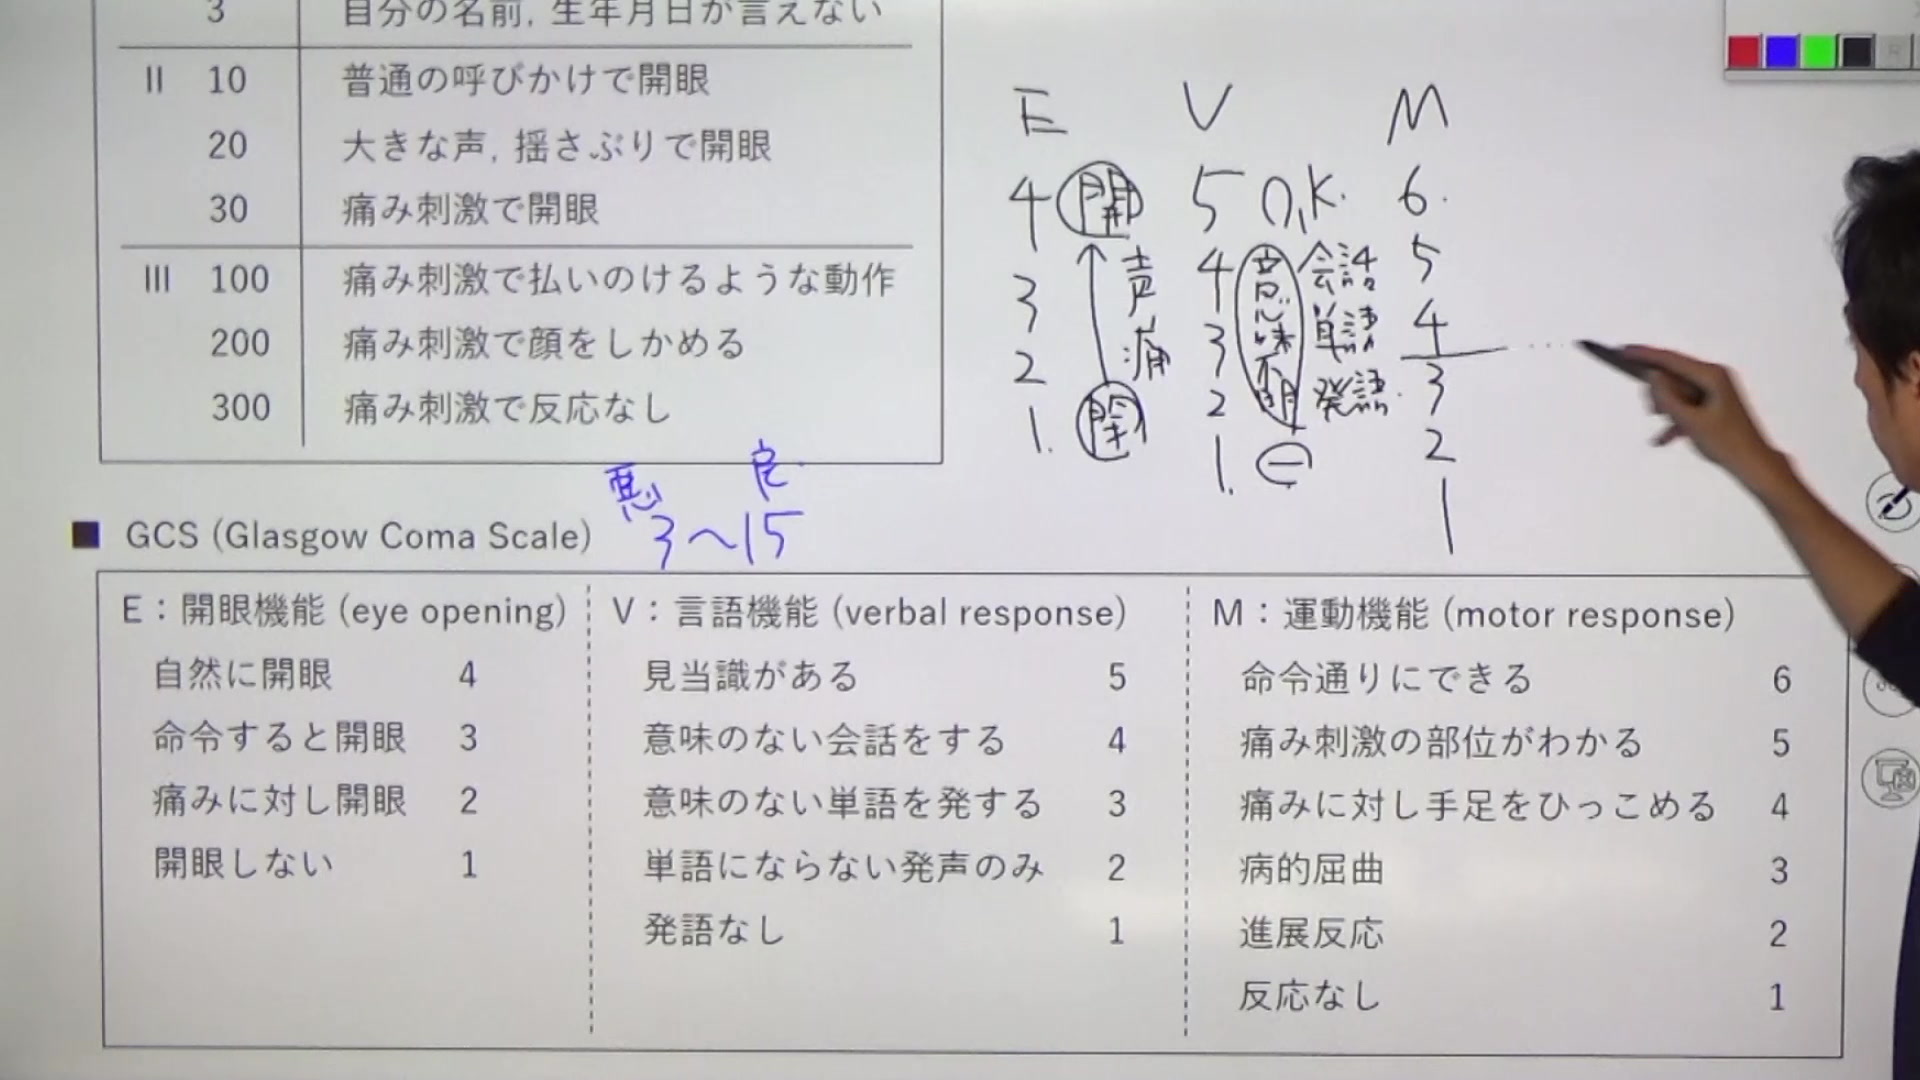 3 自分の名前, 生年月日が言えない
II 10 普通の呼びかけで開眼
20 大きな声, 揺さぶりで開眼
30 痛み刺激で開眼
III 100 痛み刺激で払いのけるような動作
200 痛み刺激で顔をしかめる
300 痛み刺激で反応なし
E V M
4 開 5 O,K. 6.
3 声 4 意味不明 会話 5
2 痛 3 単語 4
1. 閉 2 発語 3
1. ㊀ 2
1
悪 良
■ GCS (Glasgow Coma Scale) 3〜15
E：開眼機能 (eye opening)
自然に開眼 4
命令すると開眼 3
痛みに対し開眼 2
開眼しない 1
V：言語機能 (verbal response)
見当識がある 5
意味のない会話をする 4
意味のない単語を発する 3
単語にならない発声のみ 2
発語なし 1
M：運動機能 (motor response)
命令通りにできる 6
痛み刺激の部位がわかる 5
痛みに対し手足をひっこめる 4
病的屈曲 3
進展反応 2
反応なし 1